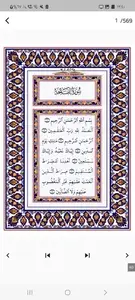 1 /569
سورة الفاتحة
بِسْمِ اللَّهِ الرَّحْمَٰنِ الرَّحِيمِ
الْحَمْدُ لِلَّهِ رَبِّ الْعَٰلَمِينَ
الرَّحْمَٰنِ الرَّحِيمِ مَٰلِكِ يَوْمِ
الدِّينِ إِيَّاكَ نَعْبُدُ وَإِيَّاكَ
نَسْتَعِينُ اهْدِنَا الصِّرَٰطَ
الْمُسْتَقِيمَ صِرَٰطَ الَّذِينَ
أَنْعَمْتَ عَلَيْهِمْ غَيْرِ الْمَغْضُوبِ
عَلَيْهِمْ وَلَا الضَّالِّينَ